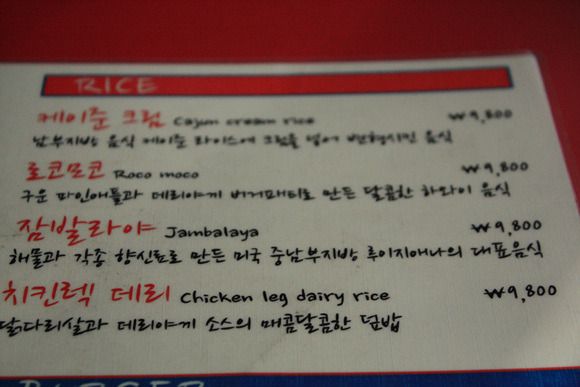 RICE
케이준 크림 Cajun cream rice ₩9,800
남부지방 음식 케이준 라이스에 크림을 넣어 변형시킨 음식
로코모코 Roco moco ₩9,800
구운 파인애플과 데리야끼 버거패티로 만든 달콤한 하와이 음식
잠발라야 Jambalaya ₩9,800
해물과 각종 향신료로 만든 미국 중남부지방 루이지애나의 대표음식
치킨렉 데리 Chicken leg dairy rice ₩9,800
닭다리살과 데리야끼 소스의 매콤달콤한 덮밥
BURGER